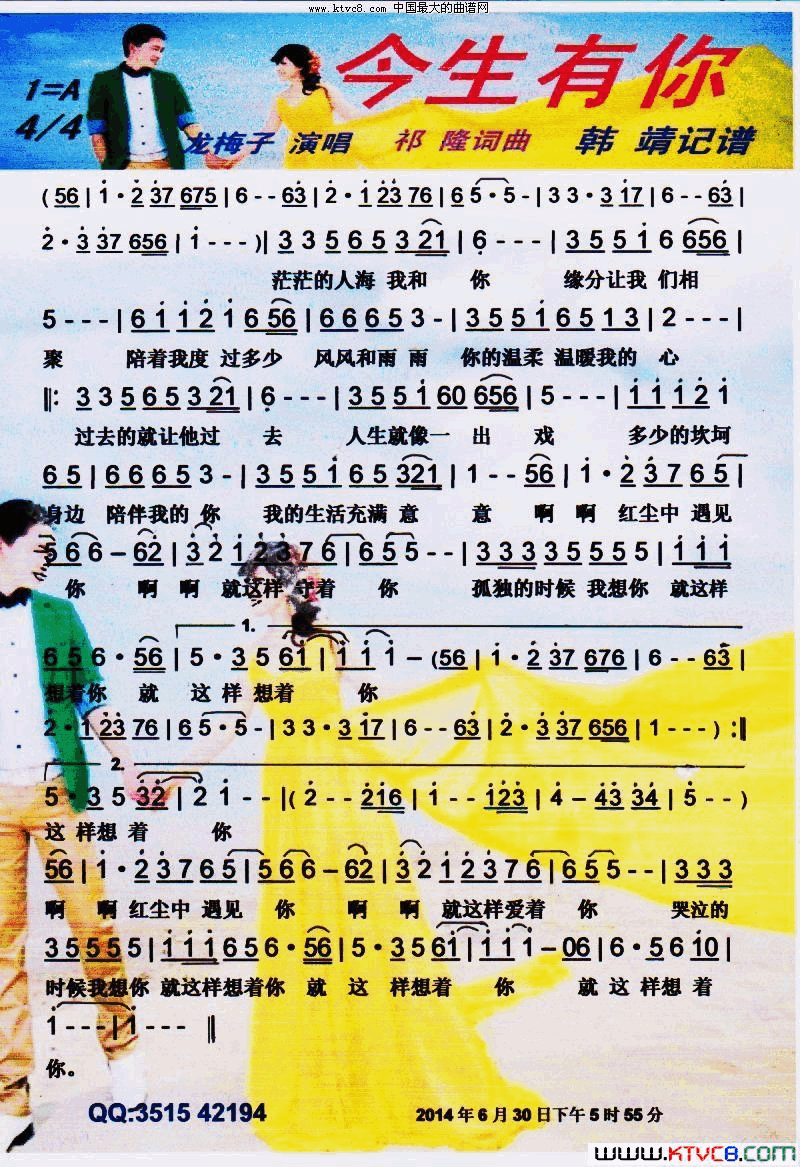 www.ktvc8.com 中国最大的曲谱网
今生有你
1=A
4/4
龙梅子 演唱 祁 隆词曲 韩 靖记谱
(56|1·2 37 675|6--63|2·1 23 76|6 5·5-|3 3·3 17|6--63|
2·3 37 656|1---)|3 3 5 6 5 3 21|6---|3 5 5 1 6 656|
茫茫的人海 我和 你 缘分让我 们相
5---|6 1 1 2 1 6 56|6 6 6 5 3-|3 5 5 1 6 5 1 3|2---|
聚 陪着我度 过多少 风风和雨 雨 你的温柔 温暖我的 心
‖: 3 3 5 6 5 3 21|6---|3 5 5 1 60 656|5---|1 1 1 2 1
过去的就让他过 去 人生就像一 出 戏 多少的坎坷
6 5|6 6 6 5 3-|3 5 5 1 6 5 321|1--56|1·2 3 7 6 5|
身边 陪伴我的 你 我的生活充满 意 意 啊 啊 红尘中 遇见
5 6 6-62|3 2 1 2 3 7 6|6 5 5--|3 3 3 3 5 5 5 5|1 1 1
你 啊 啊 就这样 守着 你 孤独的时候 我想你 就这样
1.
6 5 6·56|5·3 5 61|1 1 1-(56|1·2 37 676|6--63|
想着你 就 这 样 想着 你
2·1 23 76|6 5·5-|3 3·3 17|6--63|2·3 37 656|1---):‖
2.
5·3 5 32|2 1--|(2--216|1--123|4-43 34|5--)
这 样想 着 你
56|1·2 3 7 6 5|5 6 6-62|3 2 1 2 3 7 6|6 5 5--|3 3 3
啊 啊 红尘中 遇见 你 啊 啊 就这样爱着 你 哭泣的
3 5 5 5 5|1 1 1 6 5 6·56|5·3 5 61|1 1 1-06|6·5 6 10|
时候我想你 就这样想着你 就 这 样想着 你 就 这 样想 着
1---|1---‖
你。
QQ:3515 42194
2014 年 6 月 30 日下午 5 时 55 分
www.KTVC8.com